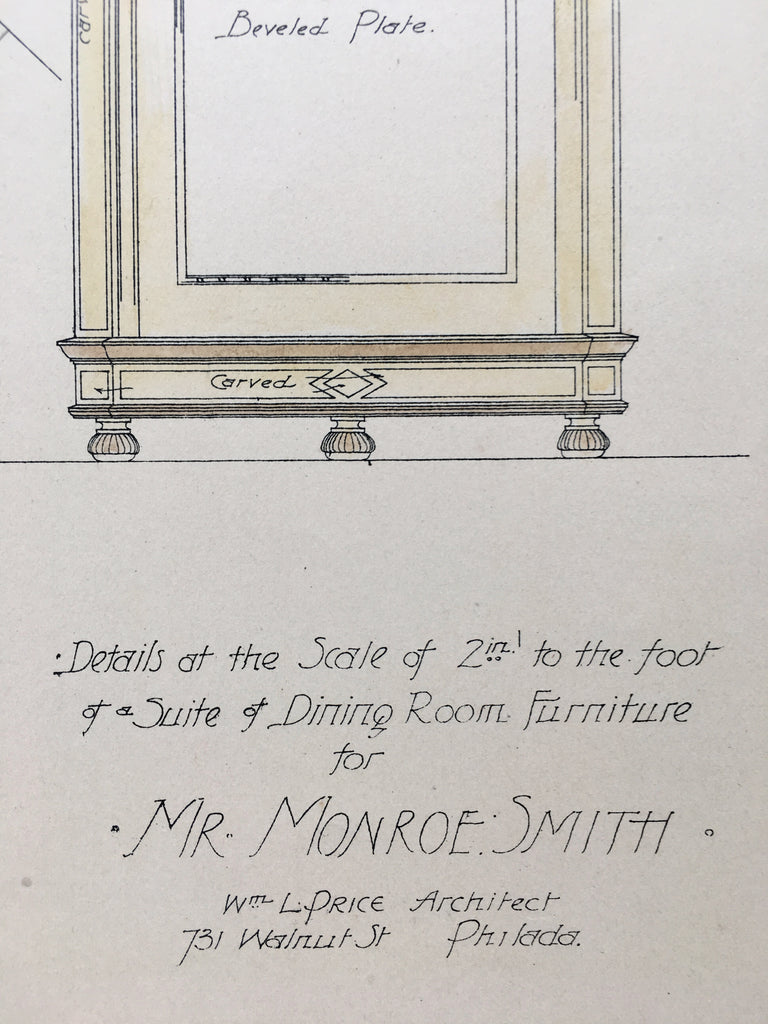 Beveled Plate.
Carved
Details at the Scale of 2in. to the foot
of a Suite of Dining Room Furniture
for
MR. MONROE SMITH
Wm L. PRICE Architect
731 Walnut St Philada.